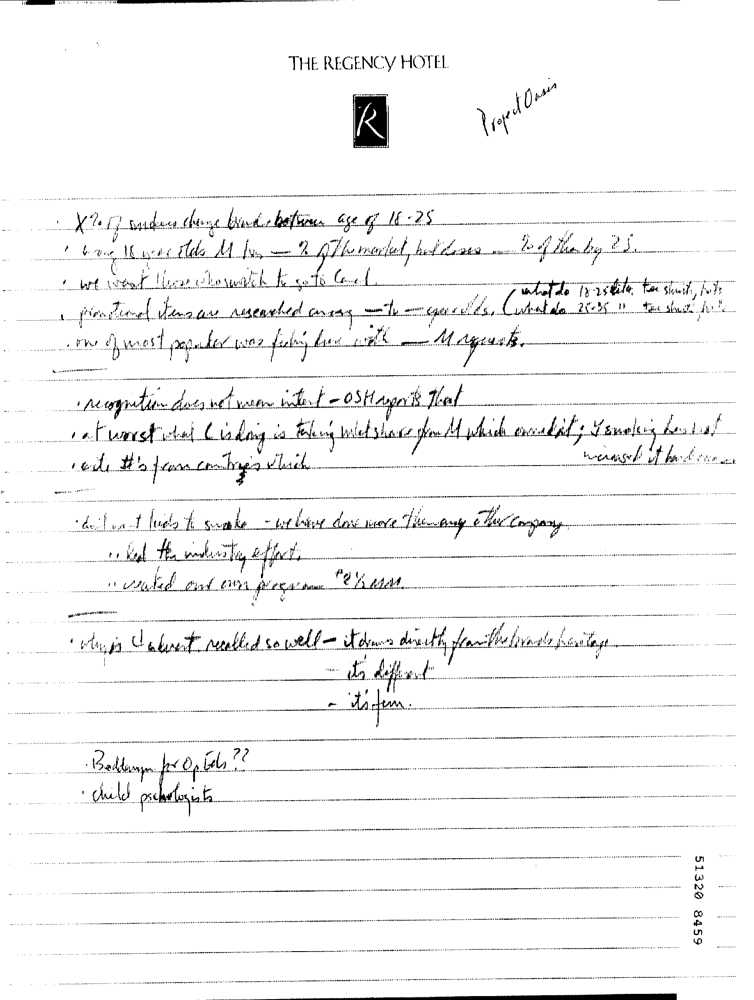 THE REGENCY HOTEL
R
Project Oasis
· X% of smokers change brands between age of 18-25
· among 18 year olds M has — % of the market, but loses — % of them by 25.
· we want those who switch to go to Camel.
(what do 18-25 like, tee shirts, hats
· promotional items are researched among — to — year olds. (what do 25-35 " tee shirts, hats
· one of most popular was fishing lure with — M requests.
· recognition does not mean intent - OSH reports that
· at worst what C is doing is taking mkt share from M which owned it; Y smoking has not
increased it had
· cite #'s from countries which
· don't want kids to smoke - we have done more than any other company
·· led the industry effort.
·· created our own program
· why is C advert. recalled so well - it draws directly from the brands heritage.
- its different
- it's fun.
· for Op Eds??
· child psychologists
51320 8459